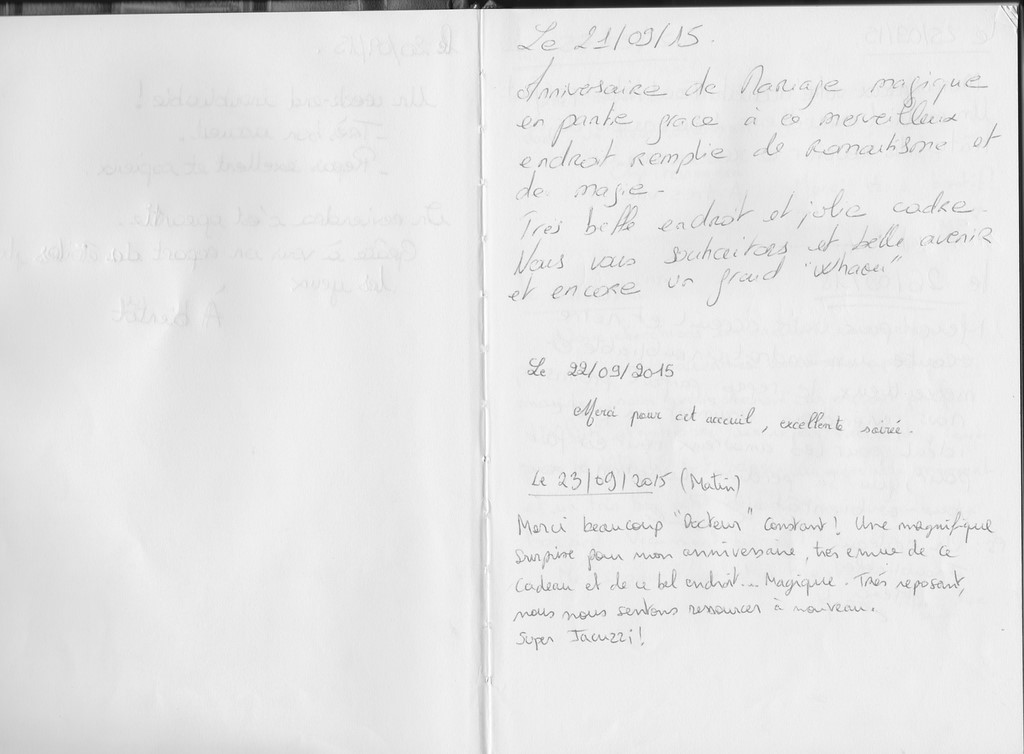 Le 21/09/15.
Anniversaire de Mariage magique
en partie grace à ce merveilleux
endroit remplie de romantisme et
de magie -
Très belle endroit et jolie cadre.
Nous vous souhaitons et belle avenir
et encore un grand "whaou"
Le 22/09/2015
Merci pour cet acceuil, excellente soirée.
Le 23/09/2015 (Matin)
Merci beaucoup "Docteur" Constant! Une magnifique
surprise pour mon anniversaire, très emue de ce
cadeau et de ce bel endroit... Magique. Très reposant,
nous nous sentons ressourcer à nouveau.
Super Jacuzzi!